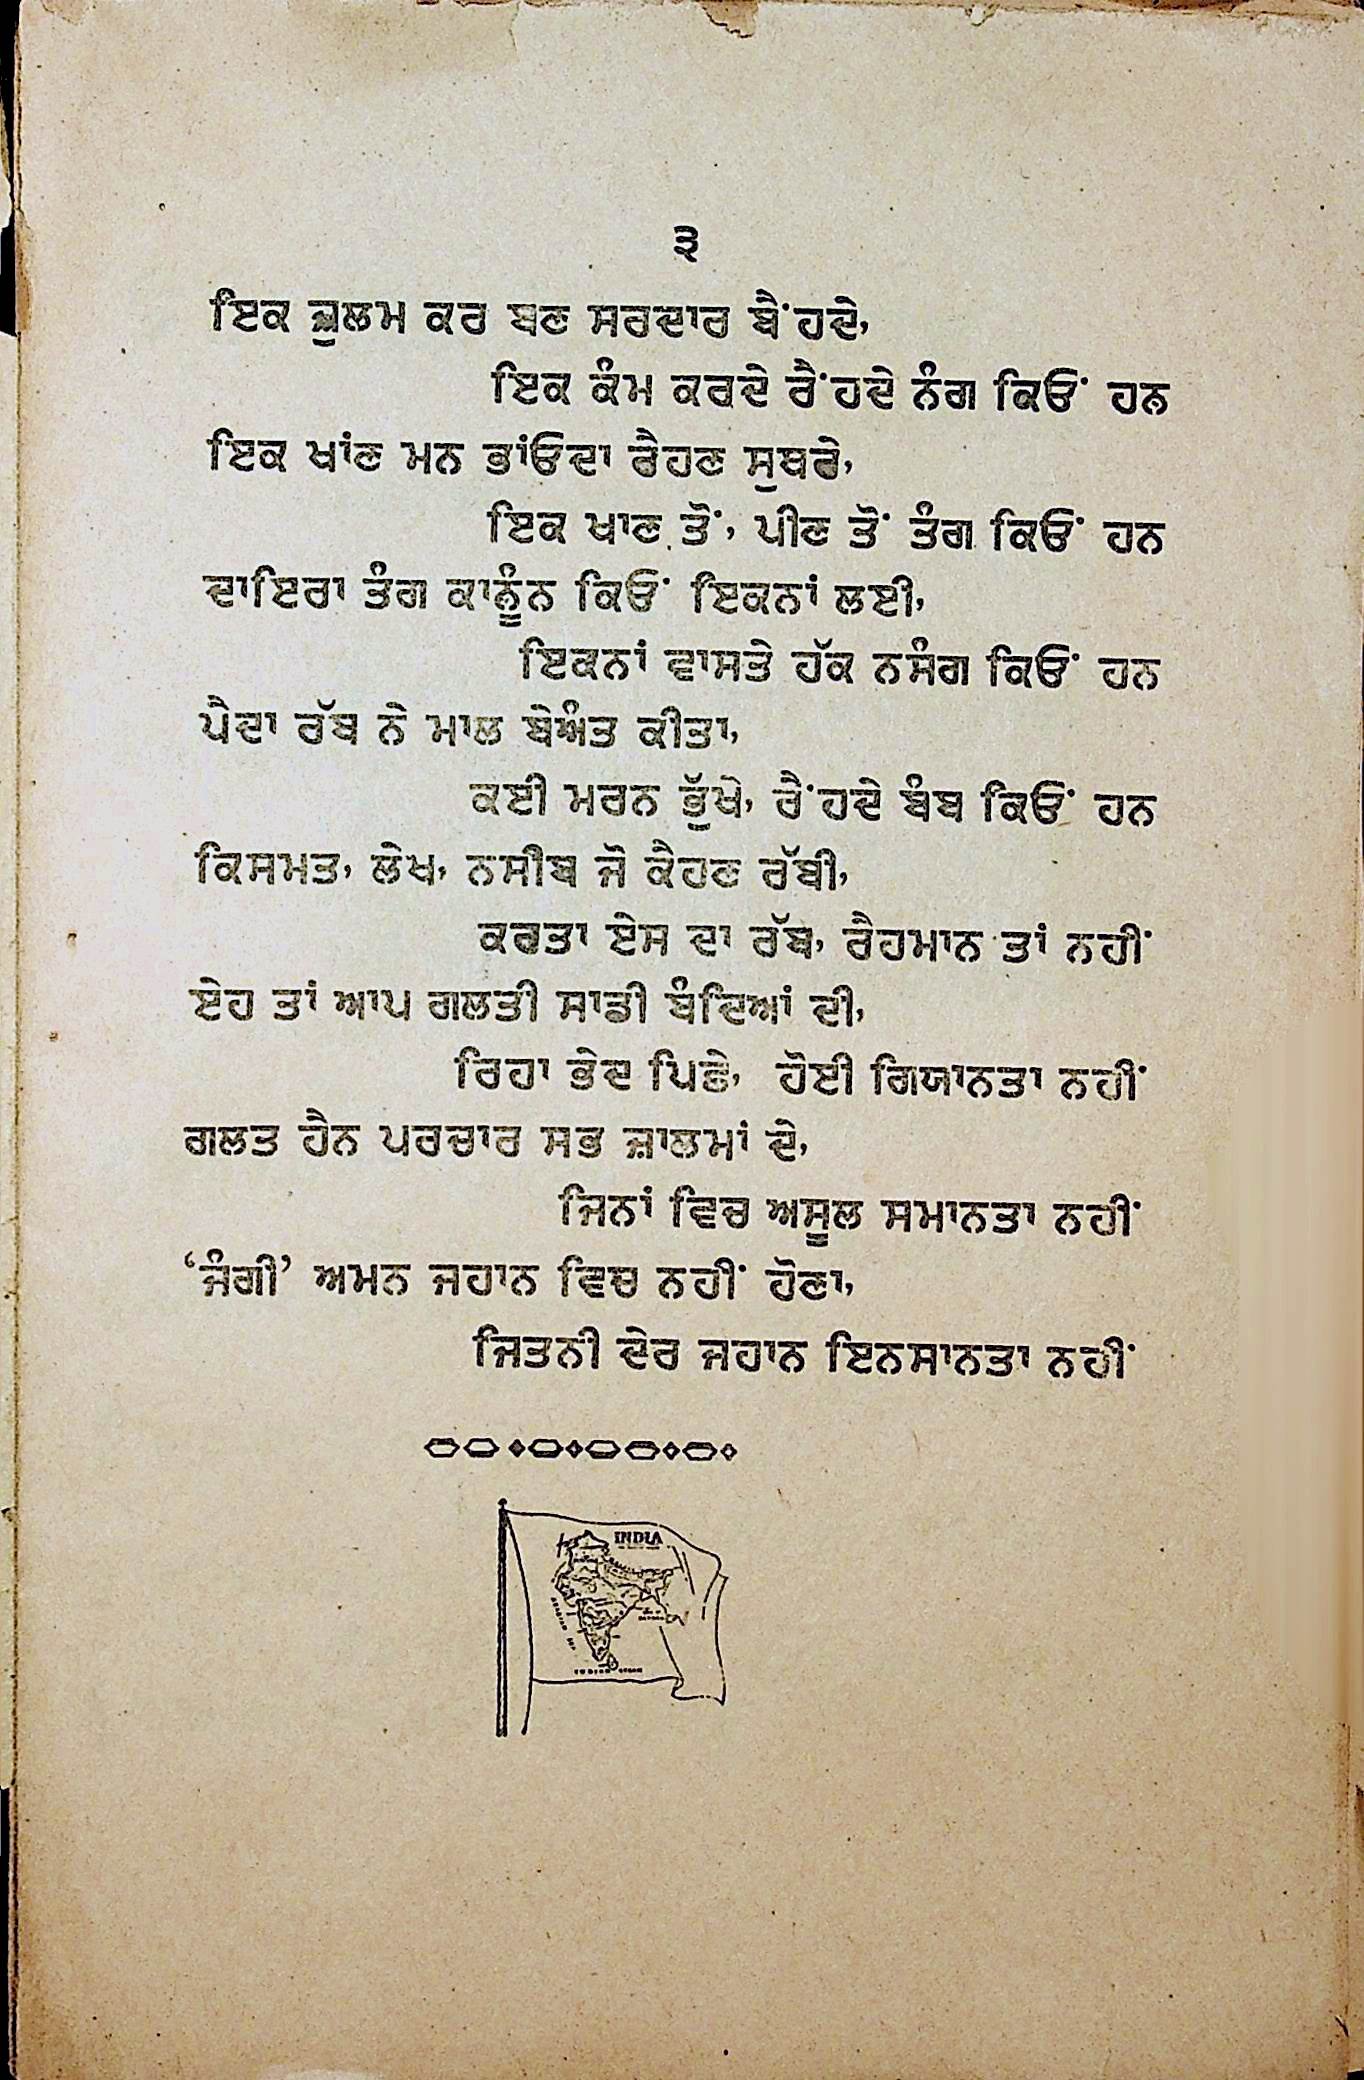 ੩
ਇਕ ਜ਼ੁਲਮ ਕਰ ਬਣ ਸਰਦਾਰ ਬੈਂਹਦੇ,
ਇਕ ਕੰਮ ਕਰਦੇ ਰੈਂਹਦੇ ਨੰਗ ਕਿਓਂ ਹਨ
ਇਕ ਖਾਂਣ ਮਨ ਭਾਂਓਦਾ ਰੈਹਣ ਸੁਥਰੇ,
ਇਕ ਖਾਣ ਤੋਂ, ਪੀਣ ਤੋਂ ਤੰਗ ਕਿਓਂ ਹਨ
ਦਾਇਰਾ ਤੰਗ ਕਾਨੂੰਨ ਕਿਓਂ ਇਕਨਾਂ ਲਈ,
ਇਕਨਾਂ ਵਾਸਤੇ ਹੱਕ ਨਸੰਗ ਕਿਓਂ ਹਨ
ਪੈਦਾ ਰੱਬ ਨੇ ਮਾਲ ਬੇਅੰਤ ਕੀਤਾ,
ਕਈ ਮਰਨ ਭੁੱਖੇ, ਰੈਂਹਦੇ ਬੰਬ ਕਿਓਂ ਹਨ
ਕਿਸਮਤ, ਲੇਖ, ਨਸੀਬ ਜੋ ਕੈਹਣ ਰੱਬੀ,
ਕਰਤਾ ਏਸ ਦਾ ਰੱਬ, ਰੈਹਮਾਨ ਤਾਂ ਨਹੀਂ
ਏਹ ਤਾਂ ਆਪ ਗਲਤੀ ਸਾਡੀ ਬੰਦਿਆਂ ਦੀ,
ਰਿਹਾ ਭੇਦ ਪਿਛੇ, ਹੋਈ ਗਿਯਾਨਤਾ ਨਹੀਂ
ਗਲਤ ਹੈਨ ਪਰਚਾਰ ਸਭ ਜ਼ਾਲਮਾਂ ਦੇ,
ਜਿਨਾਂ ਵਿਚ ਅਸੂਲ ਸਮਾਨਤਾ ਨਹੀਂ
‘ਜੰਗੀ’ ਅਮਨ ਜਹਾਨ ਵਿਚ ਨਹੀਂ ਹੋਣਾ,
ਜਿਤਨੀ ਦੇਰ ਜਹਾਨ ਇਨਸਾਨਤਾ ਨਹੀਂ
INDIA